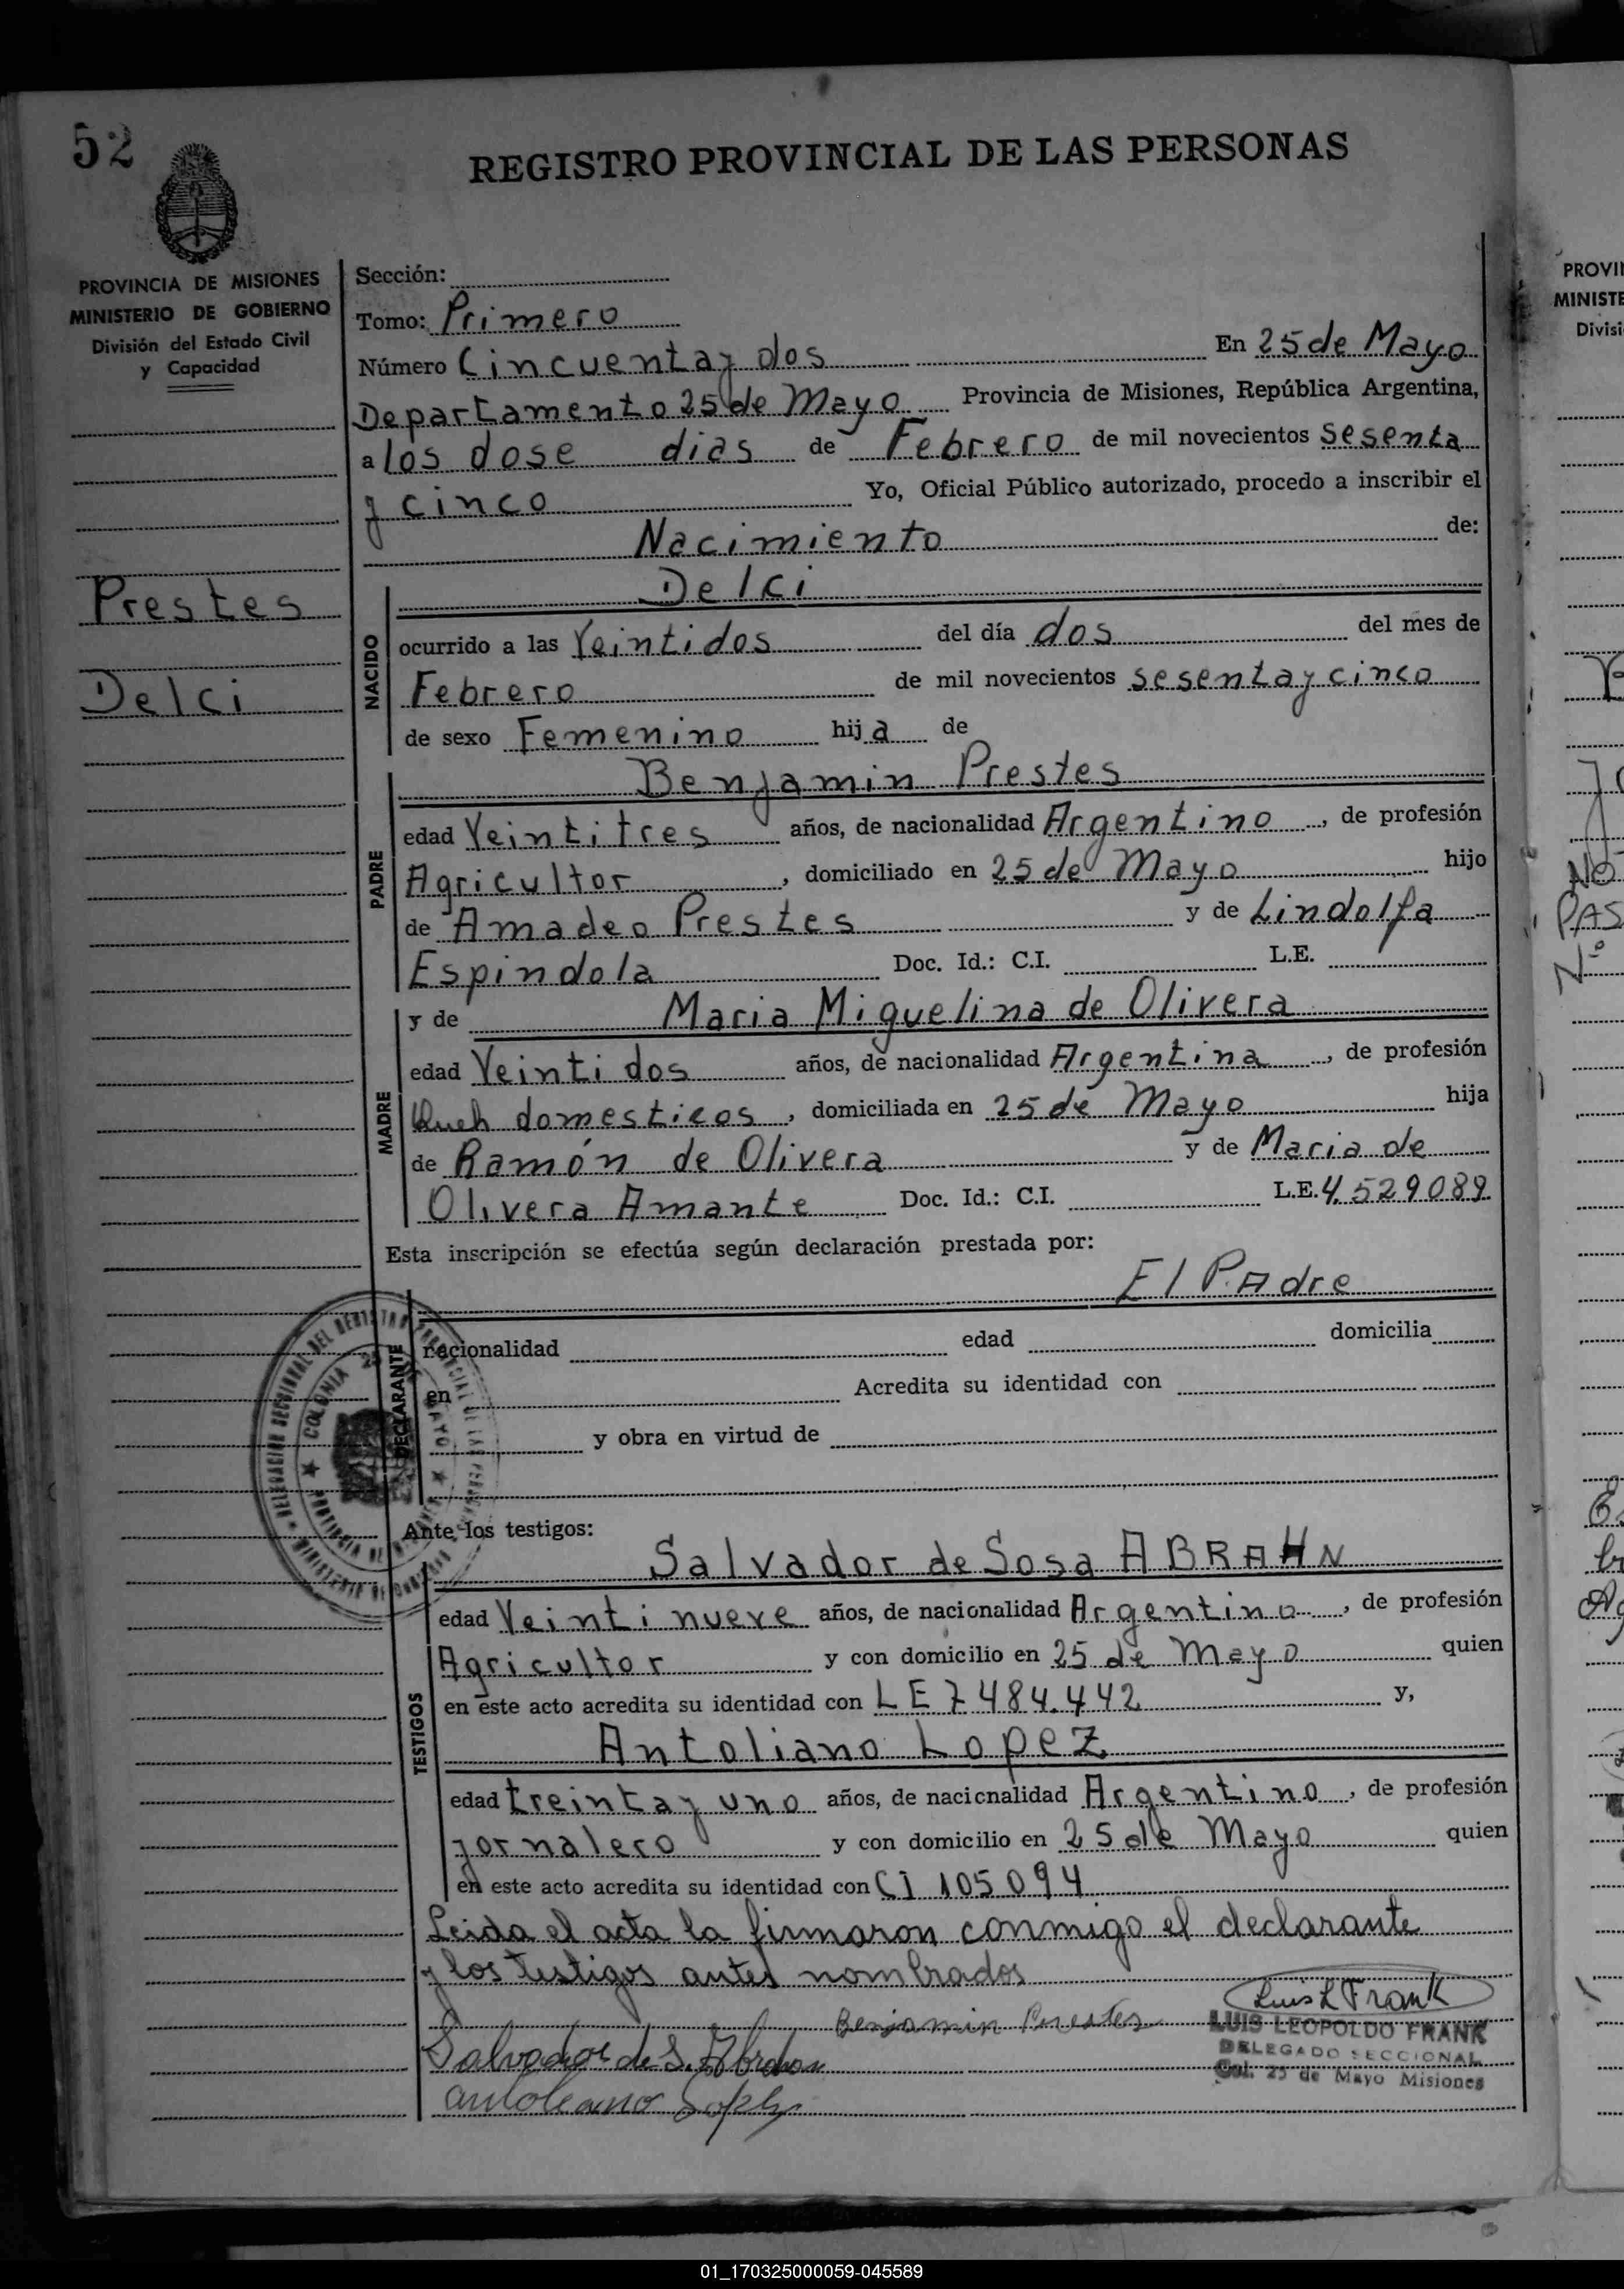 52
REGISTRO PROVINCIAL DE LAS PERSONAS
PROVINCIA DE MISIONES
MINISTERIO DE GOBIERNO
División del Estado Civil
y Capacidad
Prestes
Delci
Sección:
Tomo: Primero
Número Cincuenta y dos En 25 de Mayo
Departamento 25 de Mayo Provincia de Misiones, República Argentina,
a los dose dias de Febrero de mil novecientos sesenta
y cinco Yo, Oficial Público autorizado, procedo a inscribir el
Nacimiento de:
Delci
NACIDO
ocurrido a las Veintidos del día dos del mes de
Febrero de mil novecientos sesenta y cinco
de sexo Femenino hija de
Benjamin Prestes
PADRE
edad Veintitres años, de nacionalidad Argentino, de profesión
Agricultor, domiciliado en 25 de Mayo hijo
de Amadeo Prestes y de Lindolfa
Espindola Doc. Id.: C.I. L.E.
y de Maria Miguelina de Olivera
MADRE
edad Veinti dos años, de nacionalidad Argentina, de profesión
domesticos, domiciliada en 25 de Mayo hija
de Ramón de Olivera y de Maria de
Olivera Amante Doc. Id.: C.I. L.E. 4.529089
Esta inscripción se efectúa según declaración prestada por:
El PAdre
DECLARANTE
nacionalidad edad domicilia
en Acredita su identidad con
y obra en virtud de
Ante los testigos:
Salvador de Sosa ABRAHN
TESTIGOS
edad Veinti nueve años, de nacionalidad Argentino, de profesión
Agricultor y con domicilio en 25 de Mayo quien
en este acto acredita su identidad con LE 7484.442 y,
Antoliano Lopez
edad treinta y uno años, de nacicnalidad Argentino, de profesión
jornalero y con domicilio en 25 de Mayo quien
en este acto acredita su identidad con CI 105094
Leida el acta la firmaron conmigo el declarante
y los testigos antes nombrados
Luis L Frank
Benjamin Prestes
LUIS LEOPOLDO FRANK
DELEGADO SECCIONAL
Col. 25 de Mayo Misiones
Salvador de S. Abrahan
antoleano Lopez
PROVI
MINISTE
Divisi
01_170325000059-045589